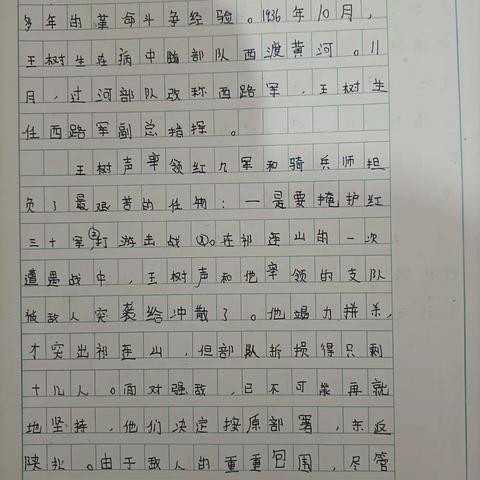 多年的革命斗争经验。1936年10月，
王树生在病中随部队西渡黄河。11
月，过河部队改称西路军，王树生
任西路军副总指挥。
王树声率领红九军和骑兵师担
负了最艰苦的任务：一是要掩护红
三十军②打游击战①。在祁连山的一次
遭遇战中，王树声和他率领的支队
被敌人突袭给冲散了。他竭力拼杀，
才突出祁连山，但部队折损得只剩
十几人。面对强敌，已不可能再就
地坚持，他们决定按原部署，东返
陕北。由于敌人的重重包围，尽管